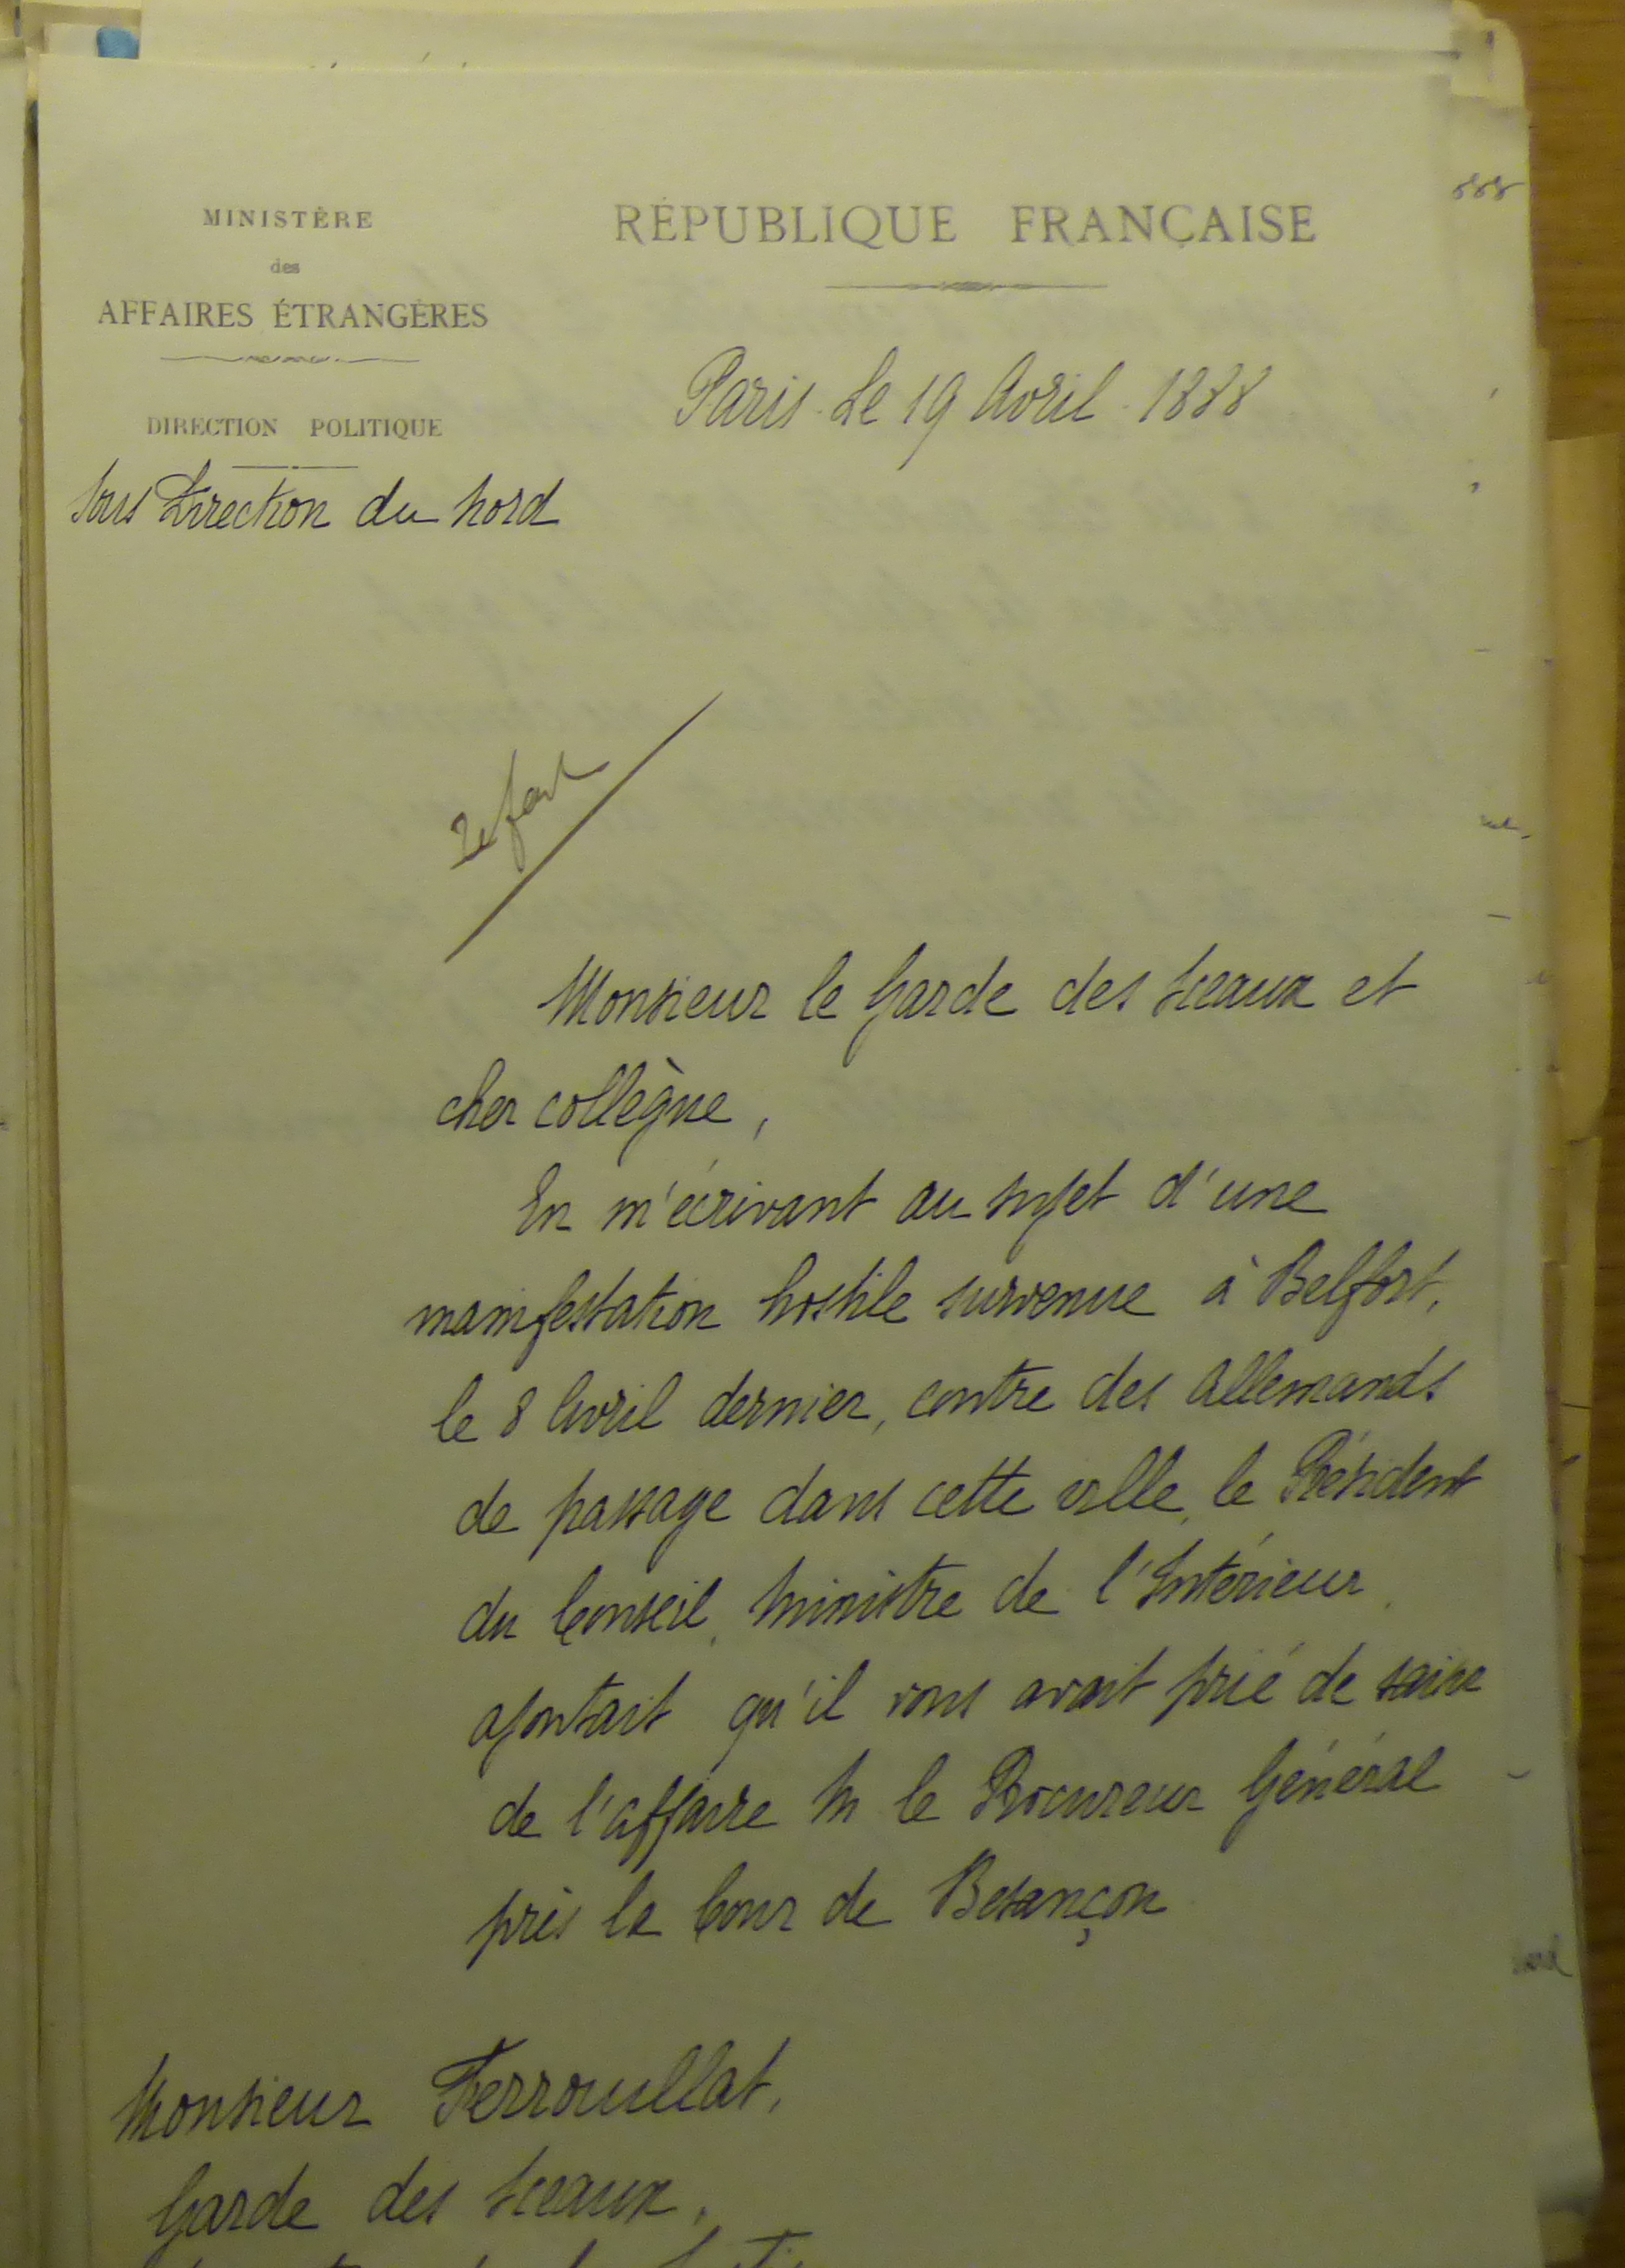 MINISTÈRE
des
AFFAIRES ÉTRANGÈRES
DIRECTION POLITIQUE
Sous Direction du Nord
RÉPUBLIQUE FRANÇAISE
Paris le 19 Avril 1888
Monsieur le Garde des Sceaux et
cher collègue,
En m'écrivant au sujet d'une
manifestation hostile survenue à Belfort,
le 8 Avril dernier, contre des Allemands
de passage dans cette ville, le Président
du Conseil, Ministre de l'Intérieur,
ajoutait qu'il vous avait prié de saisir
de l'affaire M le Procureur Général
près la Cour de Besançon
Monsieur Ferrouillat,
Garde des Sceaux,